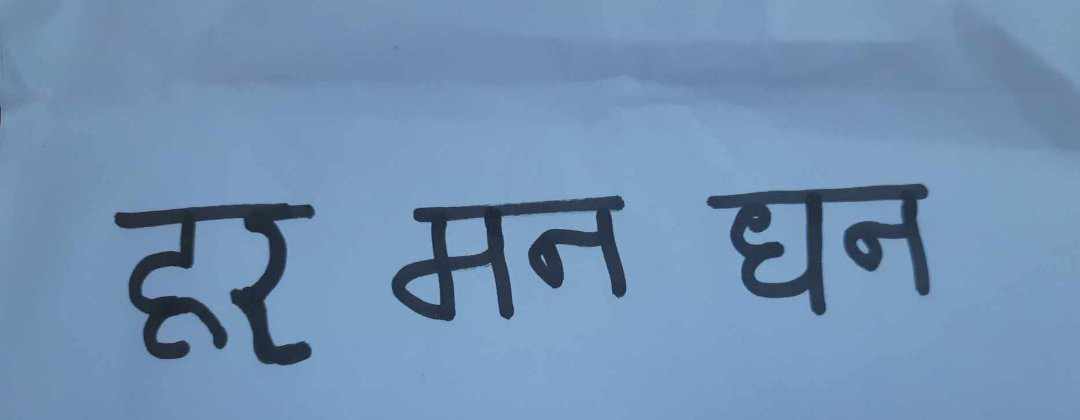 दूर मन धन